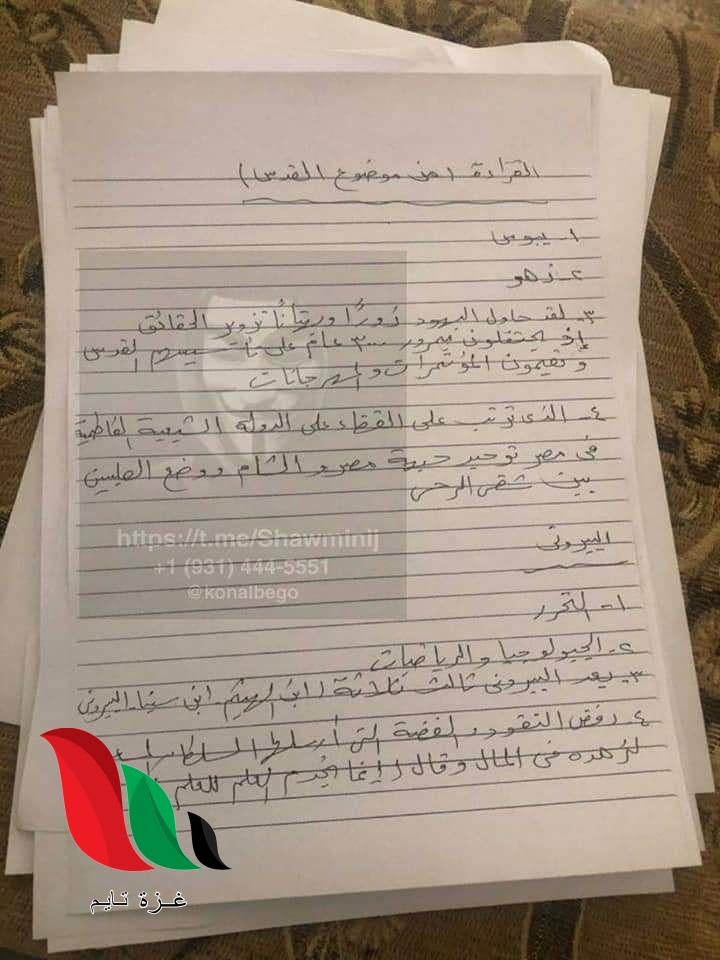 القراءة (من موضوع القدس)
١- يبوس
٢- زهو
٣- لقد حاول اليهود زورًا وبهتانًا تزوير الحقائق
إذ يحتفلون بمرور ٣٠٠٠ عام على تأسيسهم القدس
ويقيمون المؤتمرات والمهرجانات
٤- الذى ترتب على القضاء على الدولة الشيعية الفاطمية
فى مصر توحيد جبهة مصر والشام ووضع الصليبين
بين شقى الرحى
البيرونى
١- التحرر
٢- الجيولوجيا والرياضيات
٣- يعد البيرونى ثالث ثلاثة (ابن الهيثم - ابن سينا - البيرونى
٤- رفض النقود الفضة التى أرسلها السلطان
لزهده فى المال وقال إنما يخدم العلم للعلم
https://t.me/Shawminij
+1 (931) 444-5551
@konalbego
غزة تايم